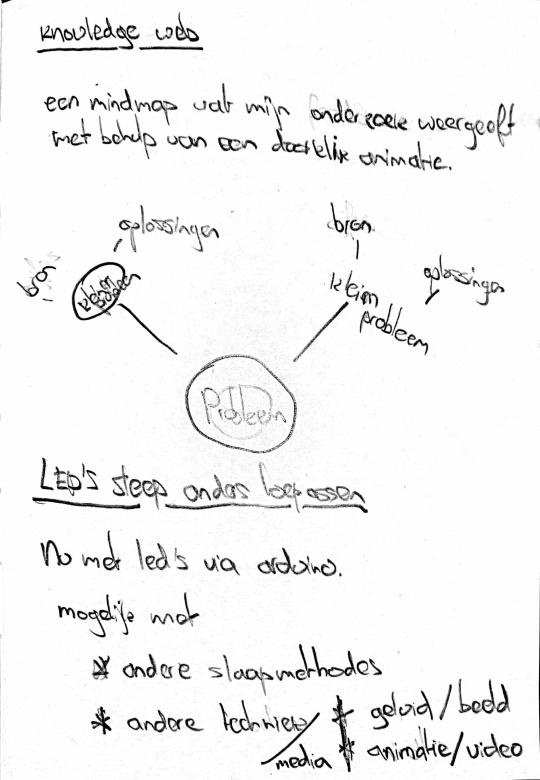 knowledge web
een mindmap wat mijn onderzoek weergeeft
met behulp van een duidelijk animatie.
oplossingen
bron
klein probleem
bron
klein
probleem
oplossingen
Probleem
LED'S steep anders toepassen
Nu met led's via arduino.
mogelije met
* andere slaapmethodes
* andere technieken / media
* geluid / beeld
* animatie / video